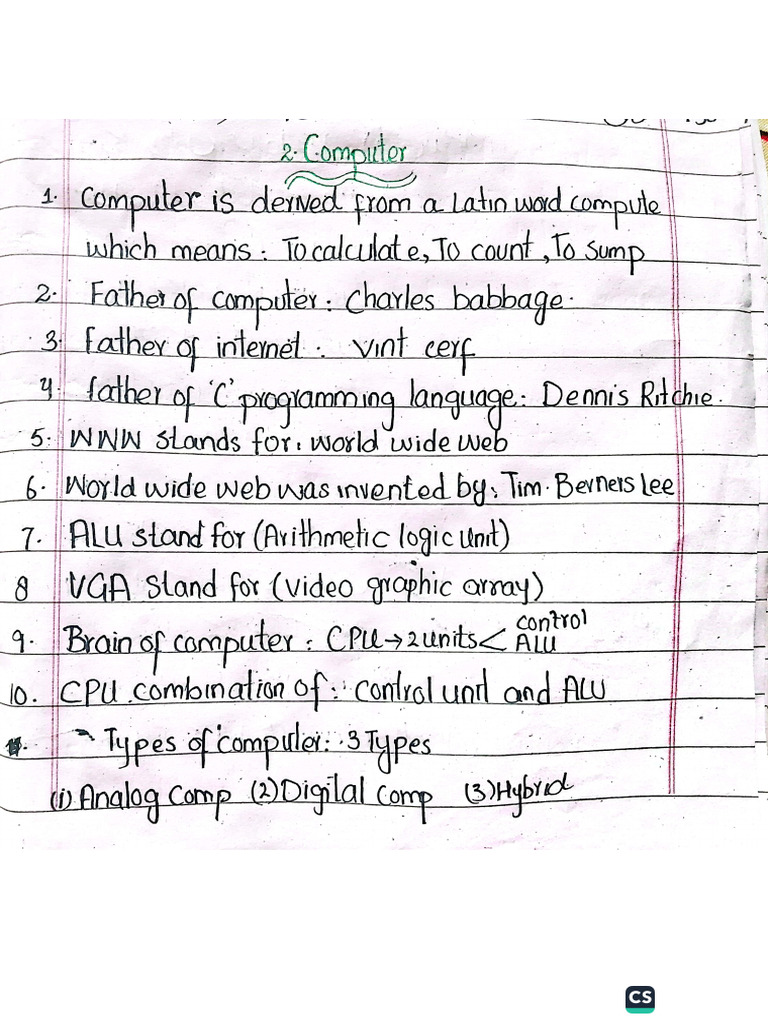 2. Computer
1. Computer is derived from a Latin word compute
which means : To calculate, To count, To sump
2. Father of computer : Charles babbage.
3. Father of internet : Vint cerf
4 father of 'C' programming language : Dennis Ritchie.
5. WWW stands for : world wide web
6. World wide web was invented by : Tim Berners Lee
7. ALU stand for (Arithmetic logic unit)
8 VGA stand for (video graphic array)
9. Brain of computer : CPU → 2 units < control ALU
10. CPU combination of : control unit and ALU
Types of computer : 3 Types
(i) Analog comp (2) Digital comp (3) Hybrid
CS